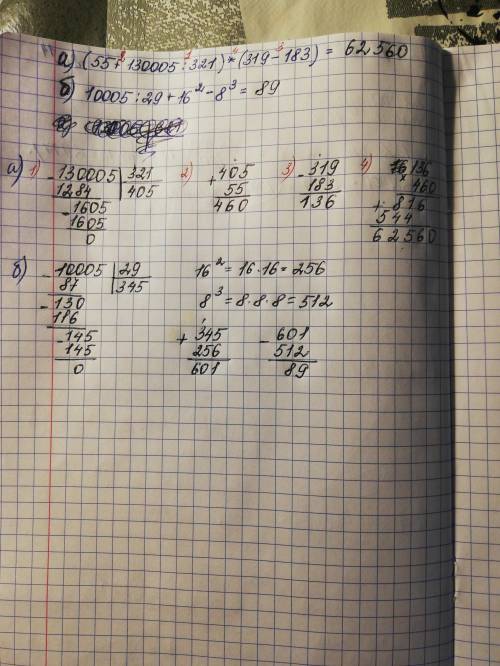 а) (55 + 130005 : 321) * (319 - 183) = 62560
2 1 4 3
б) 10005 : 29 + 16² - 8³ = 89
а) 1) - 130005 | 321
1284 | 405
- 1605
1605
0
2) + 405
55
460
3) - 319
183
136
4) 136
× 460
+ 816
544
62560
б) - 10005 | 29
87 | 345
- 130
116
- 145
145
0
16² = 16 · 16 = 256
8³ = 8 · 8 · 8 = 512
+ 345
256
601
- 601
512
89